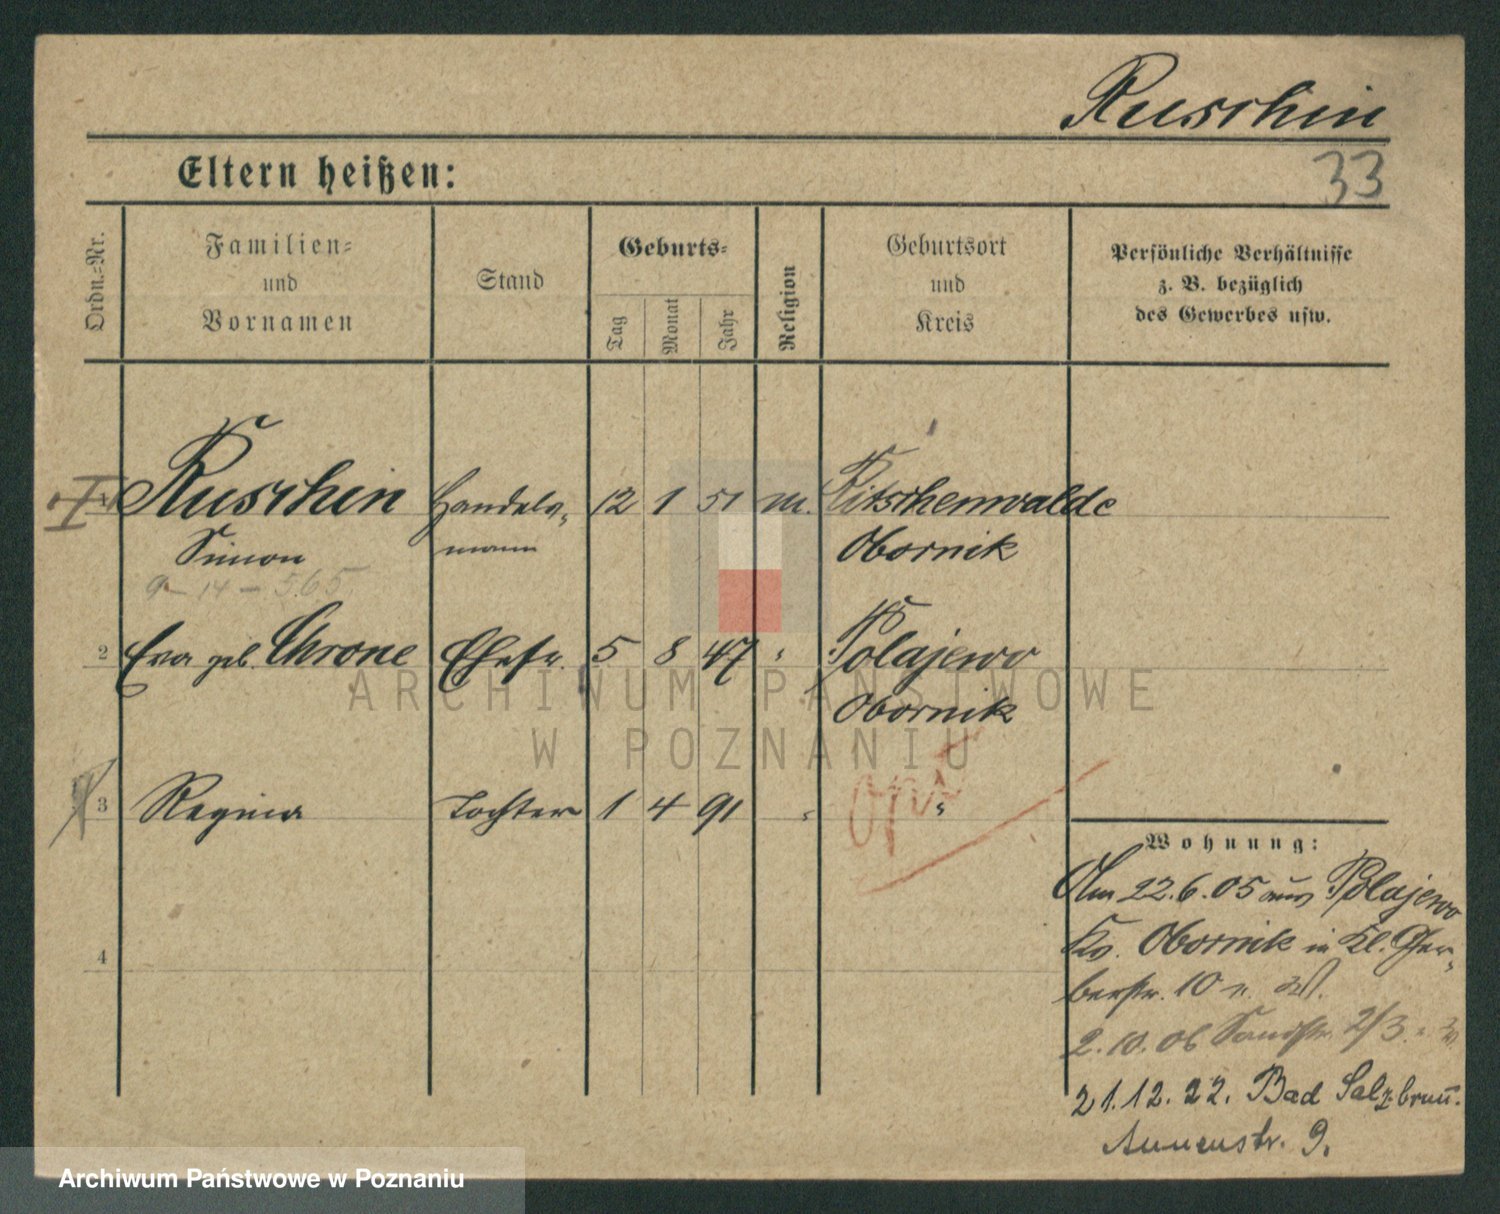 Ruschin
33
Eltern heißen:
Ordn.-Nr.
Familien- und Vornamen
Stand
Geburts-
Tag
Monat
Jahr
Religion
Geburtsort und Kreis
Persönliche Verhältnisse
z. B. bezüglich
des Gewerbes usw.
Ruschin Handels- 12 1 51 m. Ritschenwalde
Simon mann Obornik
9 - 14 - 565
2 Eva geb. Chrone Ehefr. 5 8 47 " Polajewo
Obornik
3 Regina Tochter 1 4 91 " "
Wohnung:
Am 22.6.05 aus Polajewo
Kr. Obornik in Kl. Ger-
berstr. 10
4
2.10.06 Sandstr. 2/3
21.12.22. Bad Salzbrun̅.
Annenstr. 9.
ARCHIWUM PAŃSTWOWE
W POZNANIU
Archiwum Państwowe w Poznaniu